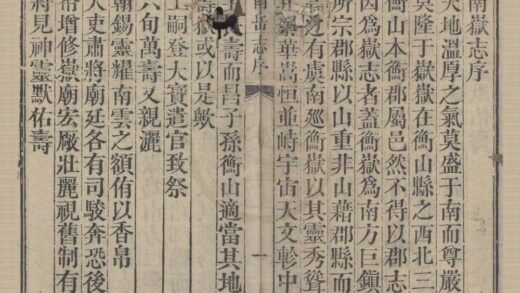 南嶽志序
天地溫厚之氣莫盛于南而尊嚴
莫隆于嶽嶽在衡山縣之西北三
衡山本衡郡屬邑然不得以郡志
因為嶽志者蓋衡嶽為南方巨鎮
所宗郡縣以山重非山藉郡縣而
近有虞南巡衡嶽以其靈秀聳
華嵩恒並峙宇宙天文軫中
南岳志序
一
壽而昌子孫衡山適當其地
壽嶽或以是歟
上嗣登大寶遣官致祭
六旬萬壽又親灑
翰錫靈耀南雲之額侑以香帛
大吏肅將廟廷各有司駿奔恐後
帑增修嶽廟宏厰壯麗視舊制有
將見神靈默佑壽